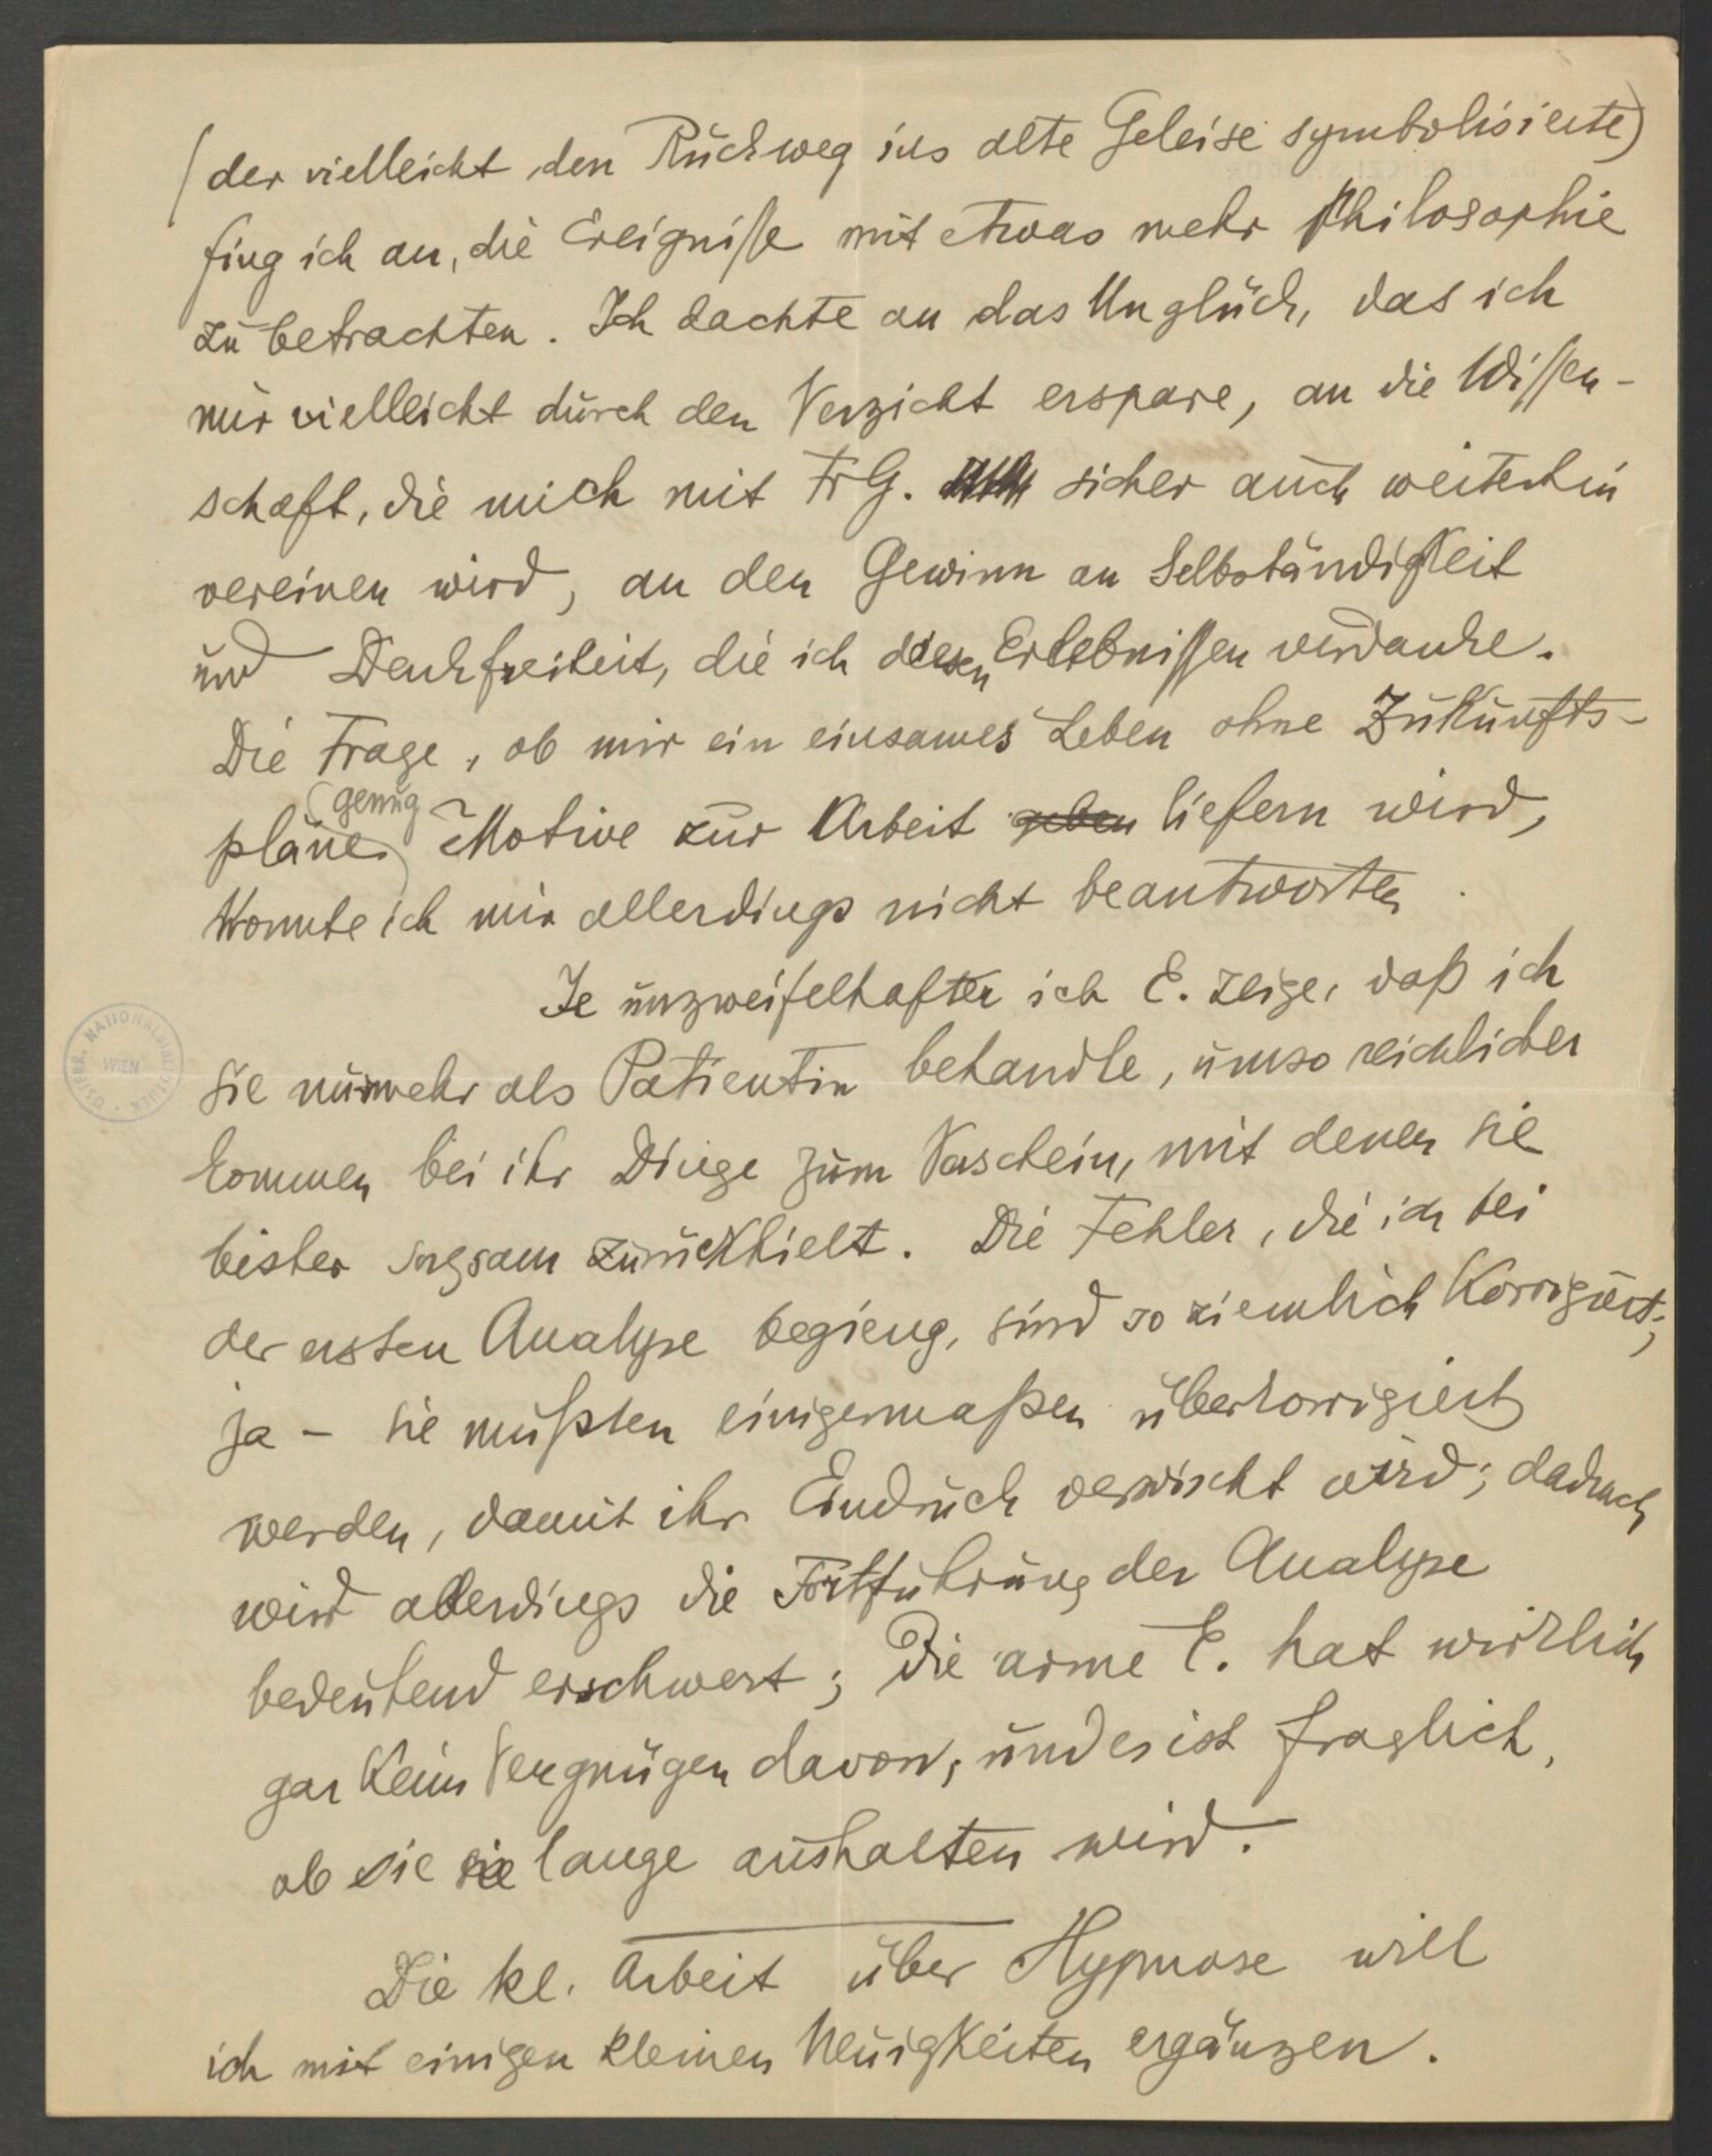 (der vielleicht den Rückweg ins alte Geleise symbolisierte)
fing ich an, die Ereignisse mit etwas mehr Philosophie
zu betrachten. Ich dachte an das Unglück, das ich
mir vielleicht durch den Verzicht erspare, an die Wissen-
schaft, die mich mit Fr G. sicher auch weiterhin
vereinen wird, an den Gewinn an Selbständigkeit
und Denkfreiheit, die ich diesen Erlebnissen verdanke.
Die Frage, ob mir ein einsames Leben ohne Zukunfts-
genug
pläne Motive zur Arbeit geben liefern wird,
konnte ich mir allerdings nicht beantworten.
Je unzweifelhafter ich E. zeige, daß ich
sie nurmehr als Patientin behandle, umso reichlicher
kommen bei ihr Dinge zum Vorschein, mit denen sie
bisher sorgsam zurückhielt. Die Fehler, die ich bei
der ersten Analyse begieng, sind so ziemlich korrigiert;
ja – sie mußten einigermaßen überkorrigiert
werden, damit ihr Eindruck verwischt wird; dadurch
wird allerdings die Fortführung der Analyse
bedeutend erschwert; Die arme E. hat wirklich
gar kein Vergnügen davon, und es ist fraglich,
ob sie sie lange aushalten wird.
Die kl. Arbeit über Hypnose will
ich mit einigen kleinen Neuigkeiten ergänzen.
ÖSTERR. NATIONALBIBLIOTHEK
WIEN